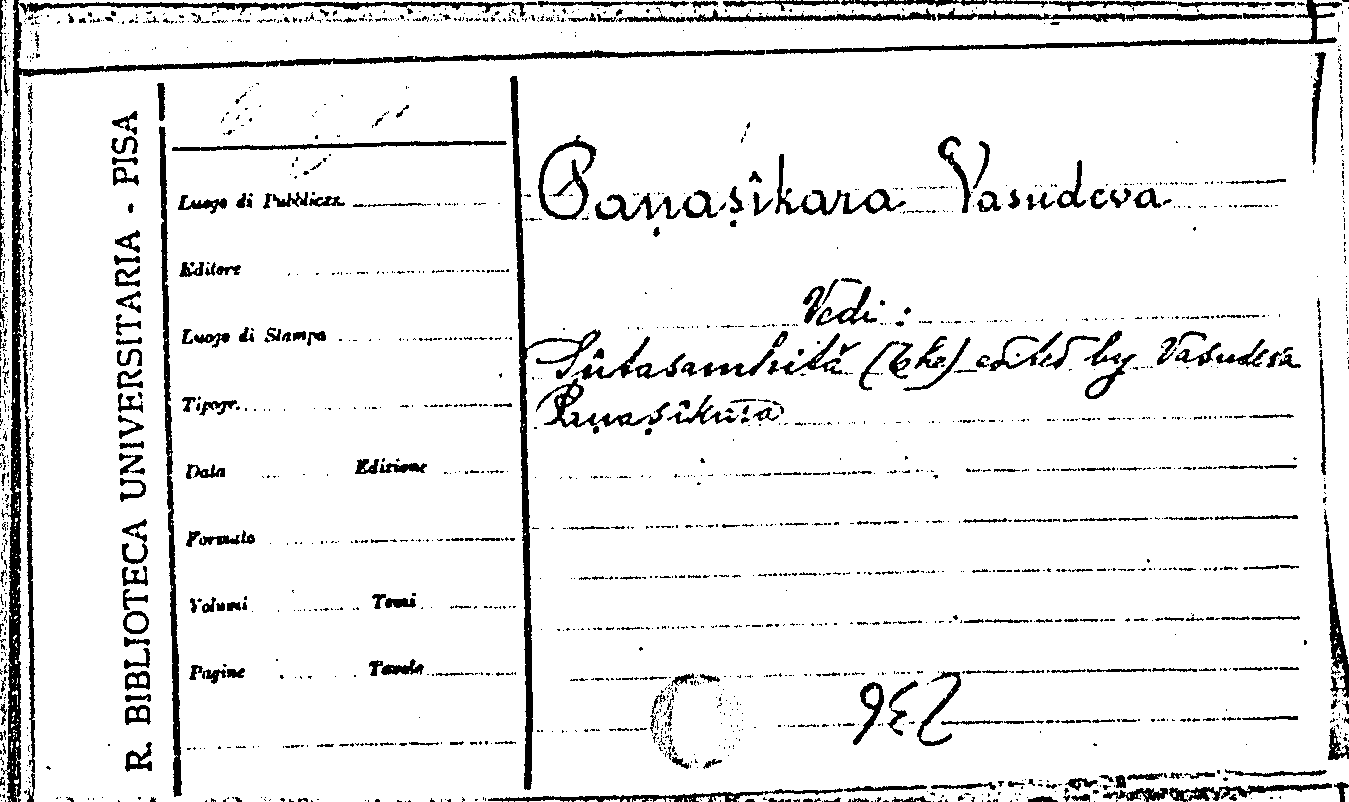 R. BIBLIOTECA UNIVERSITARIA - PISA
Luogo di Pubblicaz.
Editore
Luogo di Stampa
Tipogr.
Data Edizione
Formato
Volumi Tomi
Pagine Tavole
Paṇaṣîkara Vasudeva
Vedi :
Sûtasamhitâ (The) edited by Vasudeva
Paṇaṣîkara